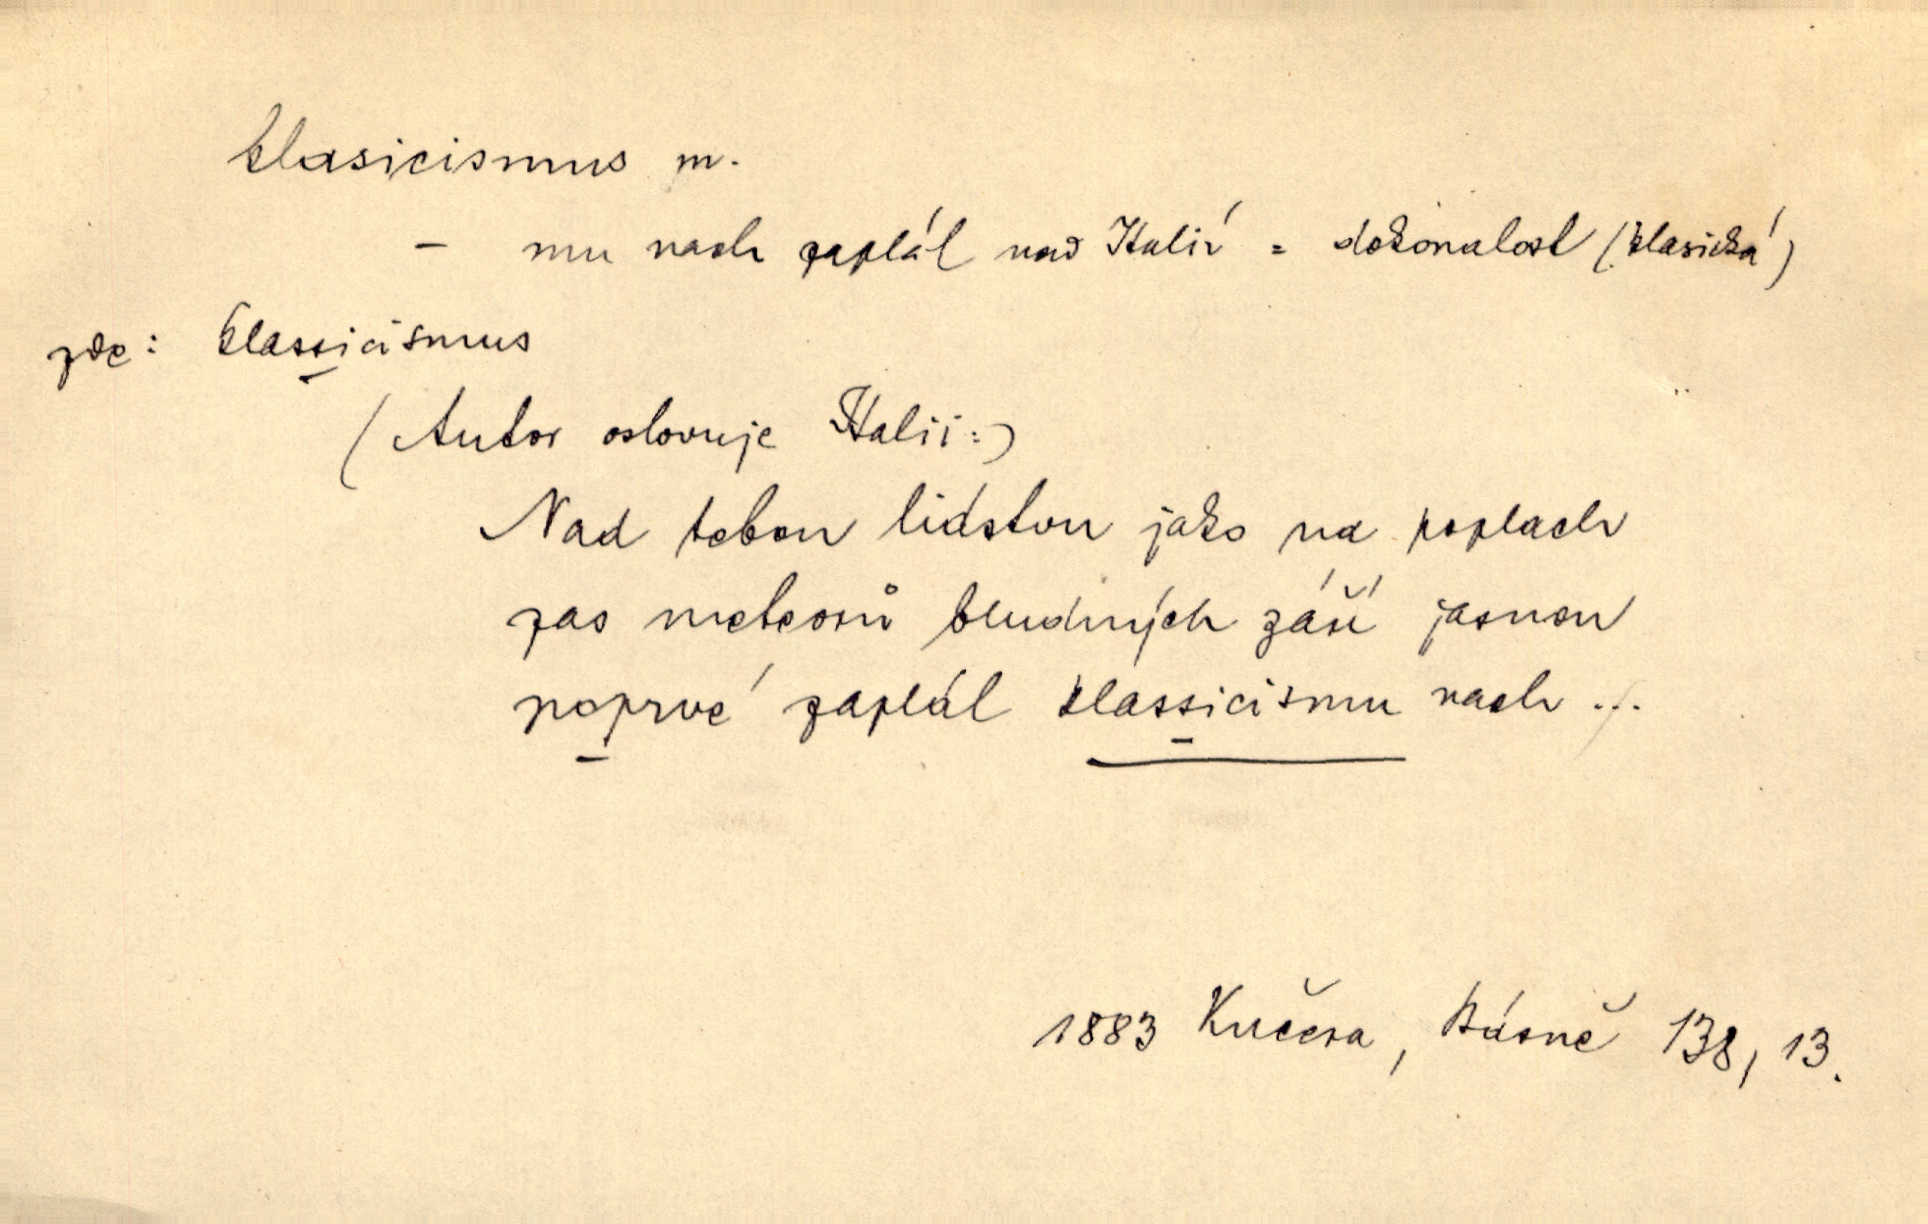 klasicismus m.
– mu nach zaplál nad Italií = dokonalost (klasická)
zde: klassicismus
(Autor oslovuje Italii:)
Nad tebou lidstvu jako na poplach
zas meteorů bludných září jasnou
poprvé zaplál klassicismu nach ...
1883 Kučera, Básně 138, 13.